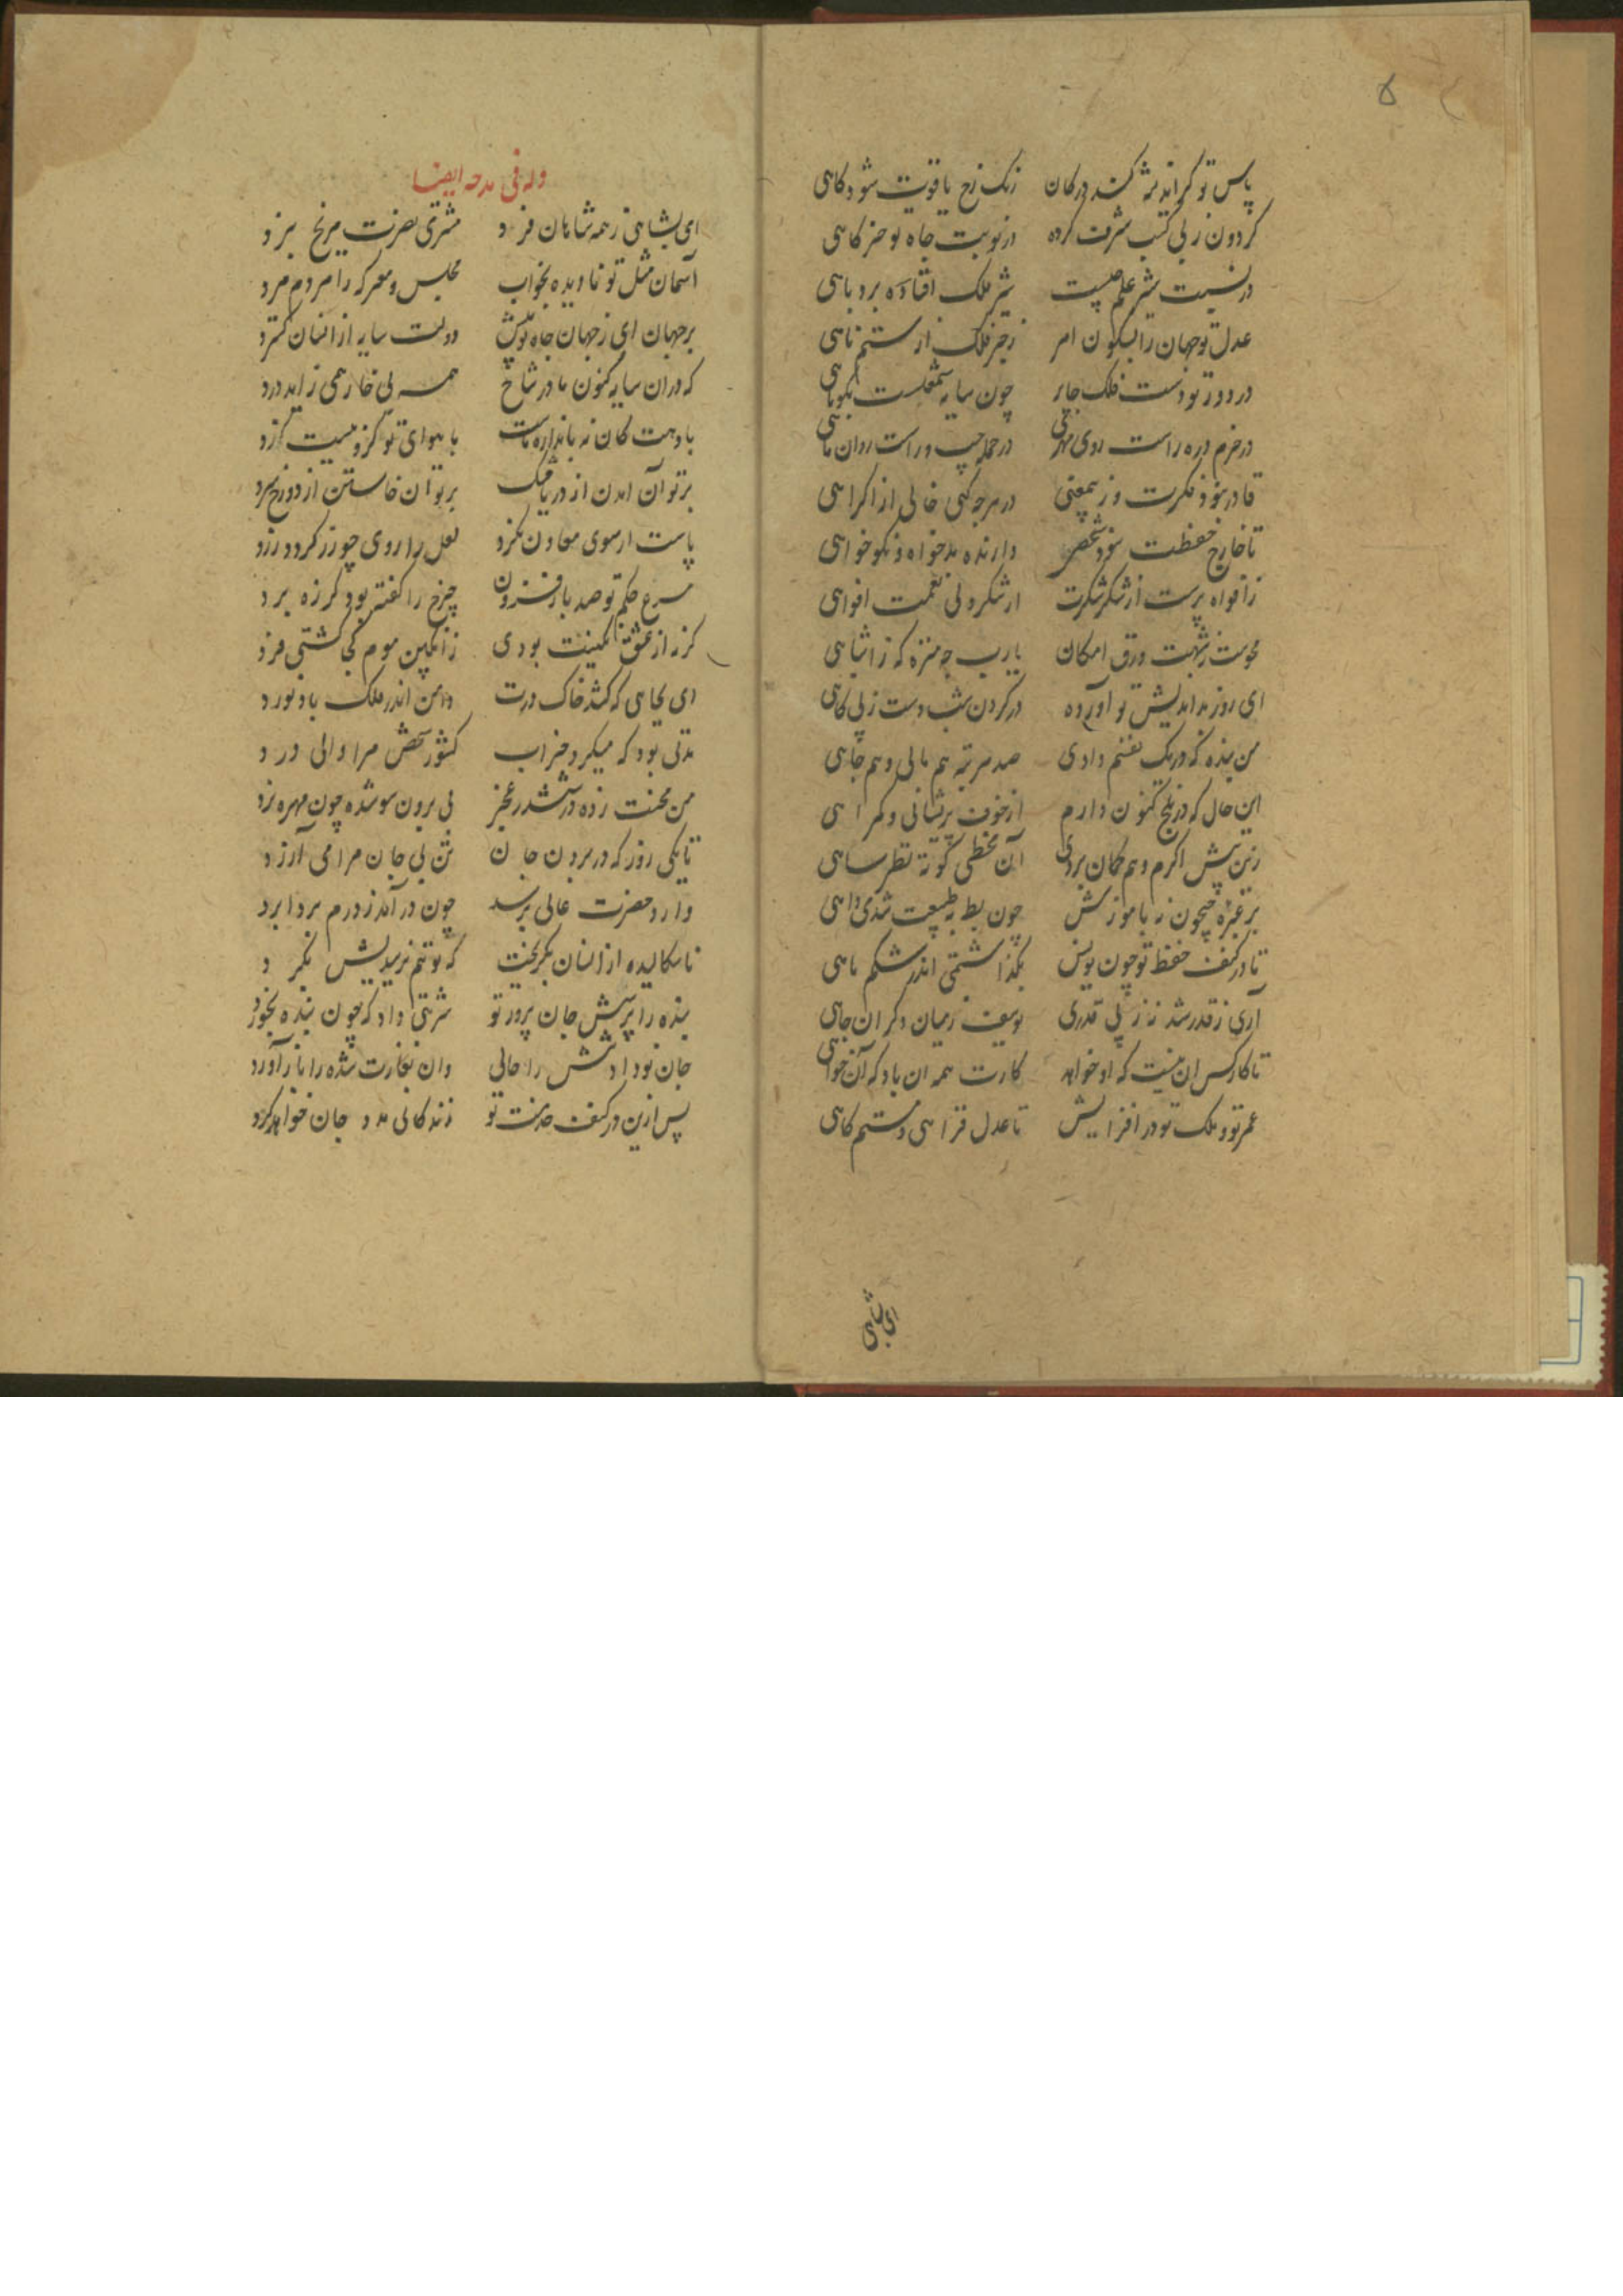 ۵
پاس تو گر اندیشه کند در کان زنک رخ یاقوت شود کاهی
کردون زپی کسب شرف کرده در نوبت جاه تو خر کاهی
در نسبت شیر علم چیست شیر فلک افتاده بروباهی
عدل تو جهان را بسکون امر زجر فلک از ستم ناهی
در دور تو دست فلک جابر چون سایه شمعست بکوتاهی
در حزم دره راست روی مهر در حمله چپ و راست روان ماهی
قادر بنفوذ فکرت وزیمعنی در هرچه کنی خالی از اکراهی
تا خارج حفظت نبود شخصی دارنده بدخواه و نکوخواهی
زافواه پرست از شکر شکرت از شکر ولی نعمت افواهی
محوست ز شبهت ورق امکان یارب چه منزه که ز اشباهی
ای روز بداندیش تو آورده در کردن شب دست ز بی کاهی
من بنده که در یک نفسم دادی صد مرتبه هم مالی و هم جاهی
این حال که در بلخ کنون دارم از خوف پریشانی و کمراهی
زین پیش اکرم وهم کمان بردی آن مخطی کوته نظر ساهی
بر عبره جیحون نه باموزش چون بط به طبیعت شدمی داهی
تا در کنف حفظ تو چون یونس بگذاشتمی اندر شکم ماهی
آری ز قدر شد نه ز بی قدری یوسف ز میان دکران چاهی
تا کار کس آن نیست که او خواهد کارت همه آن باد که آن خواهی
عمر تو و ملک تو در افزایش تا عدل فزاهی و ستم کاهی
ای بشاهی
وله فی مدحه ایضا
ای بشاهی ز همه شاهان فرد مشتری حضرت مریخ نبرد
آسمان مثل تو نادیده بخواب مجلس و معرکه را مردم مرد
بر جهان ای ز جهان جاه تو بیش دولت سایه از انسان کسترد
که در ان سایه کنون مادر شاخ همه بی خار همی زاید ورد
با دهت کان نه باندازه ماست با هوای تو کزو نیست کزرد
بر توان آمدن از دریا خشک بر توان خاستن از دوزخ سرد
پاست ار سوی معادن نکرد لعل را روی چو زر کردد زرد
مسرع حکم تو صد بار فزون چرخ را گفته بود کز ره برد
کر نه از عشق نکینت بودی زانگبین موم کجا کشتی فرد
ای بجاهی که کشد خاک درت دامن اندر فلک بادنورد
مدتی بود که میکرد خراب کشور شخص مرا والی درد
من محنت زده در ششدر عجز بی برون سو شده چون مهره نرد
تا یکی روز که در بردن جان تن بی جان مرا می آزرد
وارد حضرت عالی برسید چون در آمد ز درم بردابرد
ناسکالیده از انسان بکریخت که تو تم نرسیدیش بکرد
بنده را پرسش جان پرور تو شربتی داد که چون بنده بخورد
جان نو دادش را حالی وان بغارت شده را باز آورد
پس ازین در کنف خدمت تو زندکانی مدد جان خواهد کرد